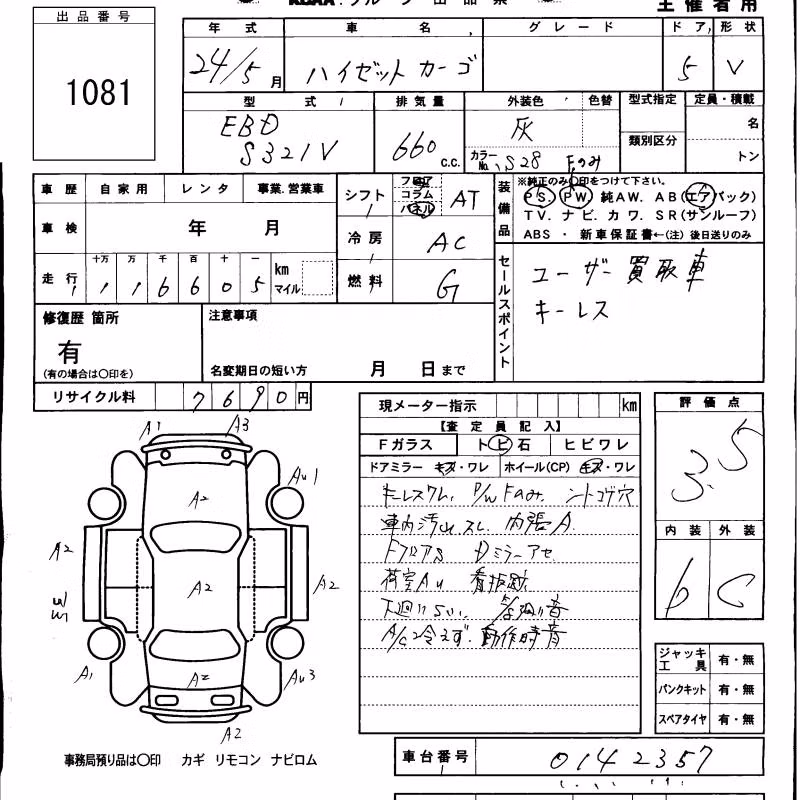 主催者用
出品番号
1081
年式 車名 グレード ドア 形状
24/5月 ハイゼットカーゴ 5 V
型式 排気量 外装色 色替 型式指定 定員・積載
EBD
S321V 660 c.c. 灰 名
カラーNo. S28 類別区分 トン
Fのみ
車歴 自家用 レンタ 事業.営業車
車検 年 月
走行 十万 万 千 百 十 一
1 1 6 6 0 5 km マイル
シフト フロア コラム パネル AT
冷房 AC
燃料 G
装備品
※純正のみ○印をつけて下さい。
PS. PW. 純AW. AB(エアバック)
TV. ナビ. カワ. SR(サンルーフ)
ABS ・ 新車保証書←(注)後日送りのみ
セールスポイント
ユーザー買取車
キーレス
修復歴 箇所
有
(有の場合は○印を)
注意事項
名変期日の短い方 月 日まで
リサイクル料 7690円
現メーター指示 km
【査定員記入】
Fガラス トビ石 ヒビワレ
ドアミラー キズ・ワレ ホイール(CP) キズ・ワレ
キーレスワレ. P/W Fのみ. シートコゲ穴
車内汚れ.スレ. 内張A.
FフロアS Dミラーアセ
荷室AU 看板跡
A/C冷えず. 動作時音
評価点
3.5
内装 外装
b C
A1 A3
A2 AU1
A2 A2 A2
A1 A2 AU3
A2
ジャッキ工具 有・無
パンクキット 有・無
スペアタイヤ 有・無
事務局預り品は○印 カギ リモコン ナビロム
車台番号 0142357